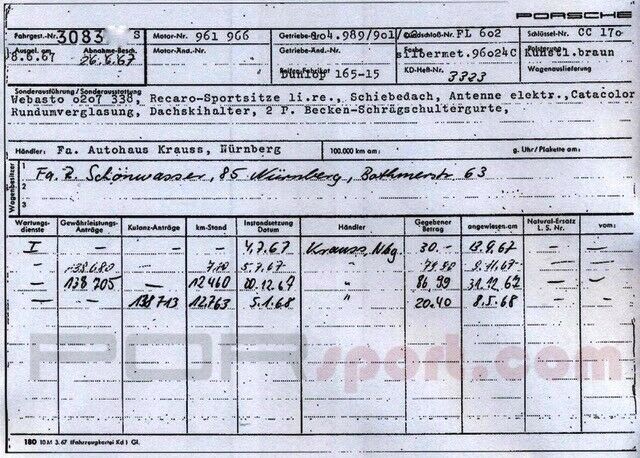 PORSCHE
Fahrgest.-Nr. 3083 S Motor-Nr. 961 966 Getriebe-Nr. 104.989/901/ FL 602 Schlüssel-Nr. CC 170
Ausgel. am 8.6.67 Abnahme-Besch. 26.6.67 Motor-Änd.-Nr. Getriebe-Änd.-Nr. Farbe silbermet.96024C Kunstl.braun
Reifen-Fabrikat Dunlop 165-15 KD-Heft-Nr. 3323 Wagenauslieferung
Sonderausführung / Sonderausstattung
Webasto 0207 338, Recaro-Sportsitze li.re., Schiebedach, Antenne elektr.,Catacolor
Rundumverglasung, Dachskihalter, 2 P. Becken-Schrägschultergurte,
Händler: Fa. Autohaus Krauss, Nürnberg 100.000 km am: g. Uhr / Plakette am:
Wagenbesitzer
1 Fa. Z. Schönwasser, 85 Nürnberg, Bothmerstr. 63 1
2 2
3 3
Wartungs-dienste Gewährleistungs-Anträge Kulanz-Anträge km-Stand Instandsetzung Datum Händler Gegebener Betrag angewiesen am Natural-Ersatz L. S. Nr. vom:
I — — — 4.7.67 Krauss Nbg. 30.- 13.9.67 — —
— 138680 — 5.7.67 " 79.90 9.11.67 — —
— 138 705 — 12460 20.12.67 " 86,99 31.12.67 — —
— — 138713 12.763 5.1.68 " 20.40 8.5.68 — —
PORsport.com
180 10 M 3. 67 (Fahrzeugkartei Kd) Gl.